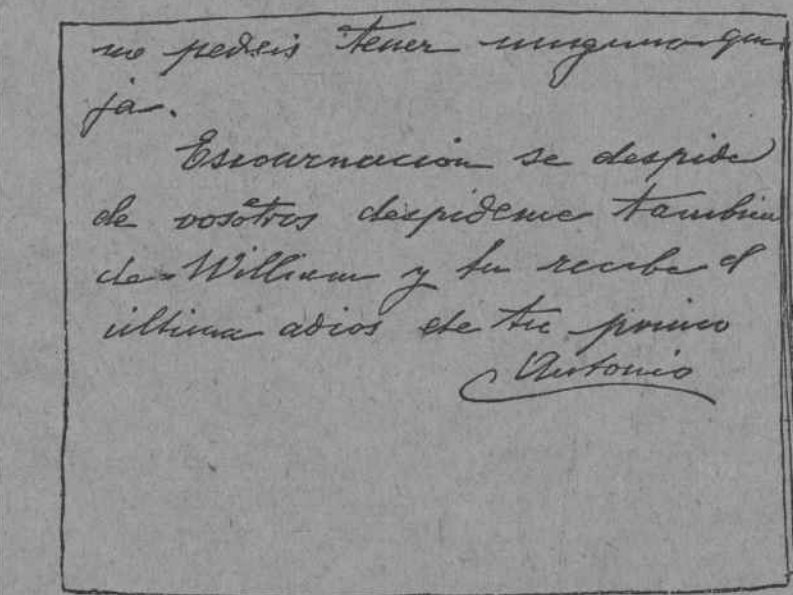 no podeis tener ninguna que
ja.
Encarnacion se despide
de vosotros despideme tambien
de William y tu recibe el
ultimo adios de tu primo
Antonio